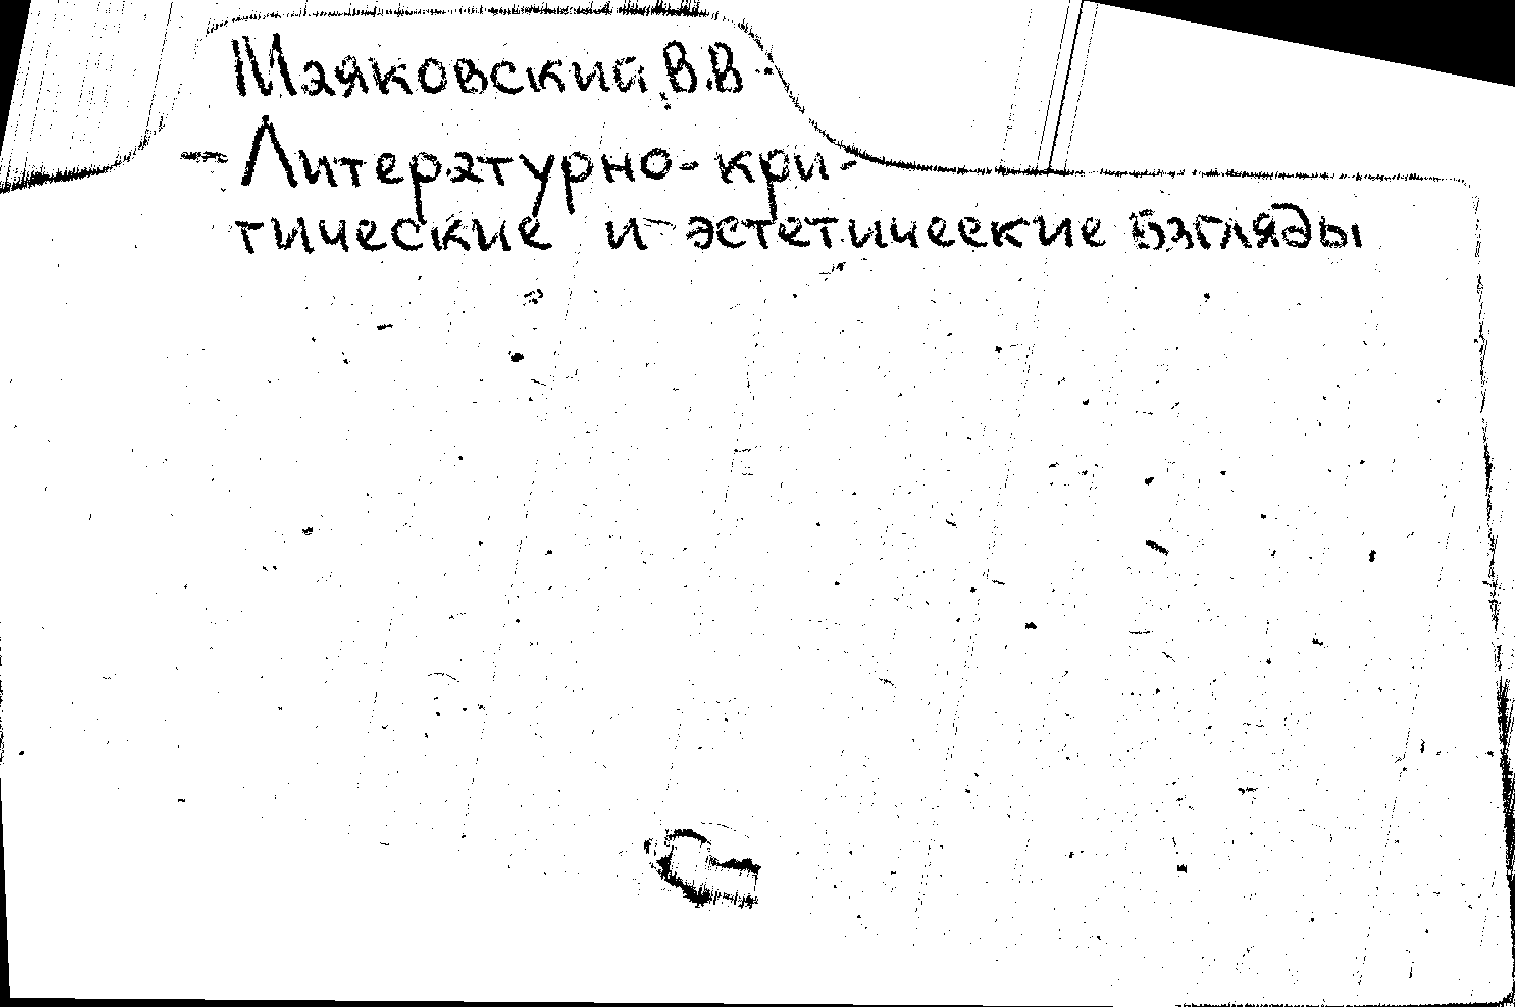 Маяковский, В.В.
- Литературно-кри-
тические и эстетические взгляды